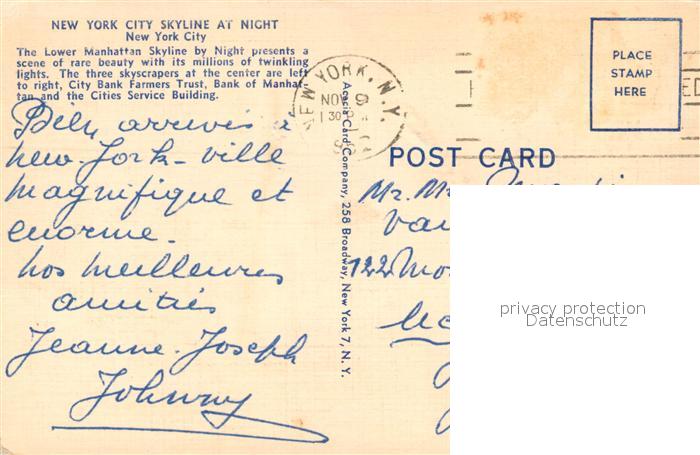 NEW YORK CITY SKYLINE AT NIGHT
New York City
The Lower Manhattan Skyline by Night presents a
scene of rare beauty with its millions of twinkling
lights. The three skyscrapers at the center are left
to right, City Bank Farmers Trust, Bank of Manhat-
tan and the Cities Service Building.
Bien arrivés à
new-York-ville
magnifique et
enorme.
nos meilleures
amitiés
Jeanne. Joseph
Johnny
NEW YORK, N.Y.
NOV 9
130
Acacia Card Company, 258 Broadway, New York 7, N. Y.
PLACE
STAMP
HERE
ED
POST CARD
Mr. Mr.
Van
122 Mo
privacy protection
Datenschutz